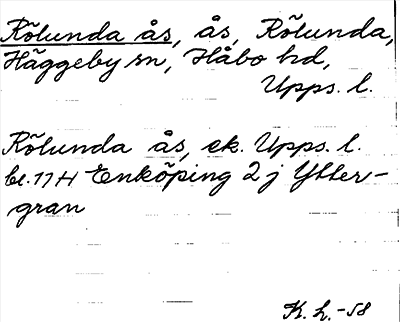 Rölunda ås, ås, Rölunda,
Häggeby sn, Håbo hd,
Upps. l.
Rölunda ås, ek. Upps. l.
bl. 11 H Enköping 2 j Ytter-
gran
K. L. -58